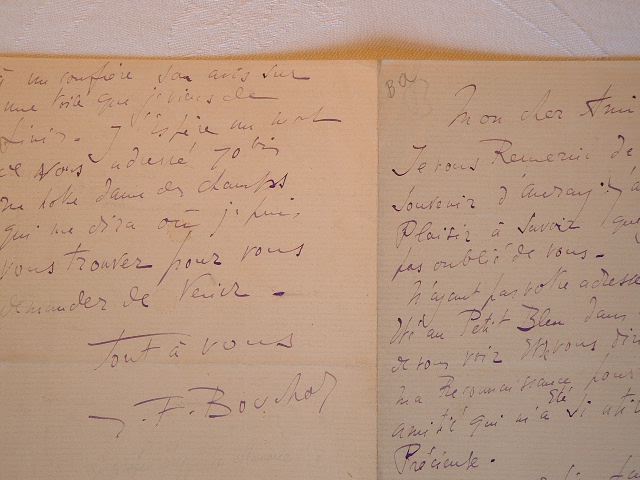 Mon cher Ami
Je vous Remercie de
Souvenir d'Auray. J'a
Plaisir à Savoir que
pas oublié de vous -
N'ayant pas votre adresse
au Petit Bleu dans
de vous voir et vous dir
ma Reconnaissance pour
amitié qui m'a Eté Si
Précieuse.
à un confrère son avis sur
une toile que je viens de
finir. J'espère un mot
de vous adressé 70 bis
rue notre dame des champs
qui me dira où je puis
vous trouver pour vous
demander de venir -
Tout à vous
J. F. Bouchor